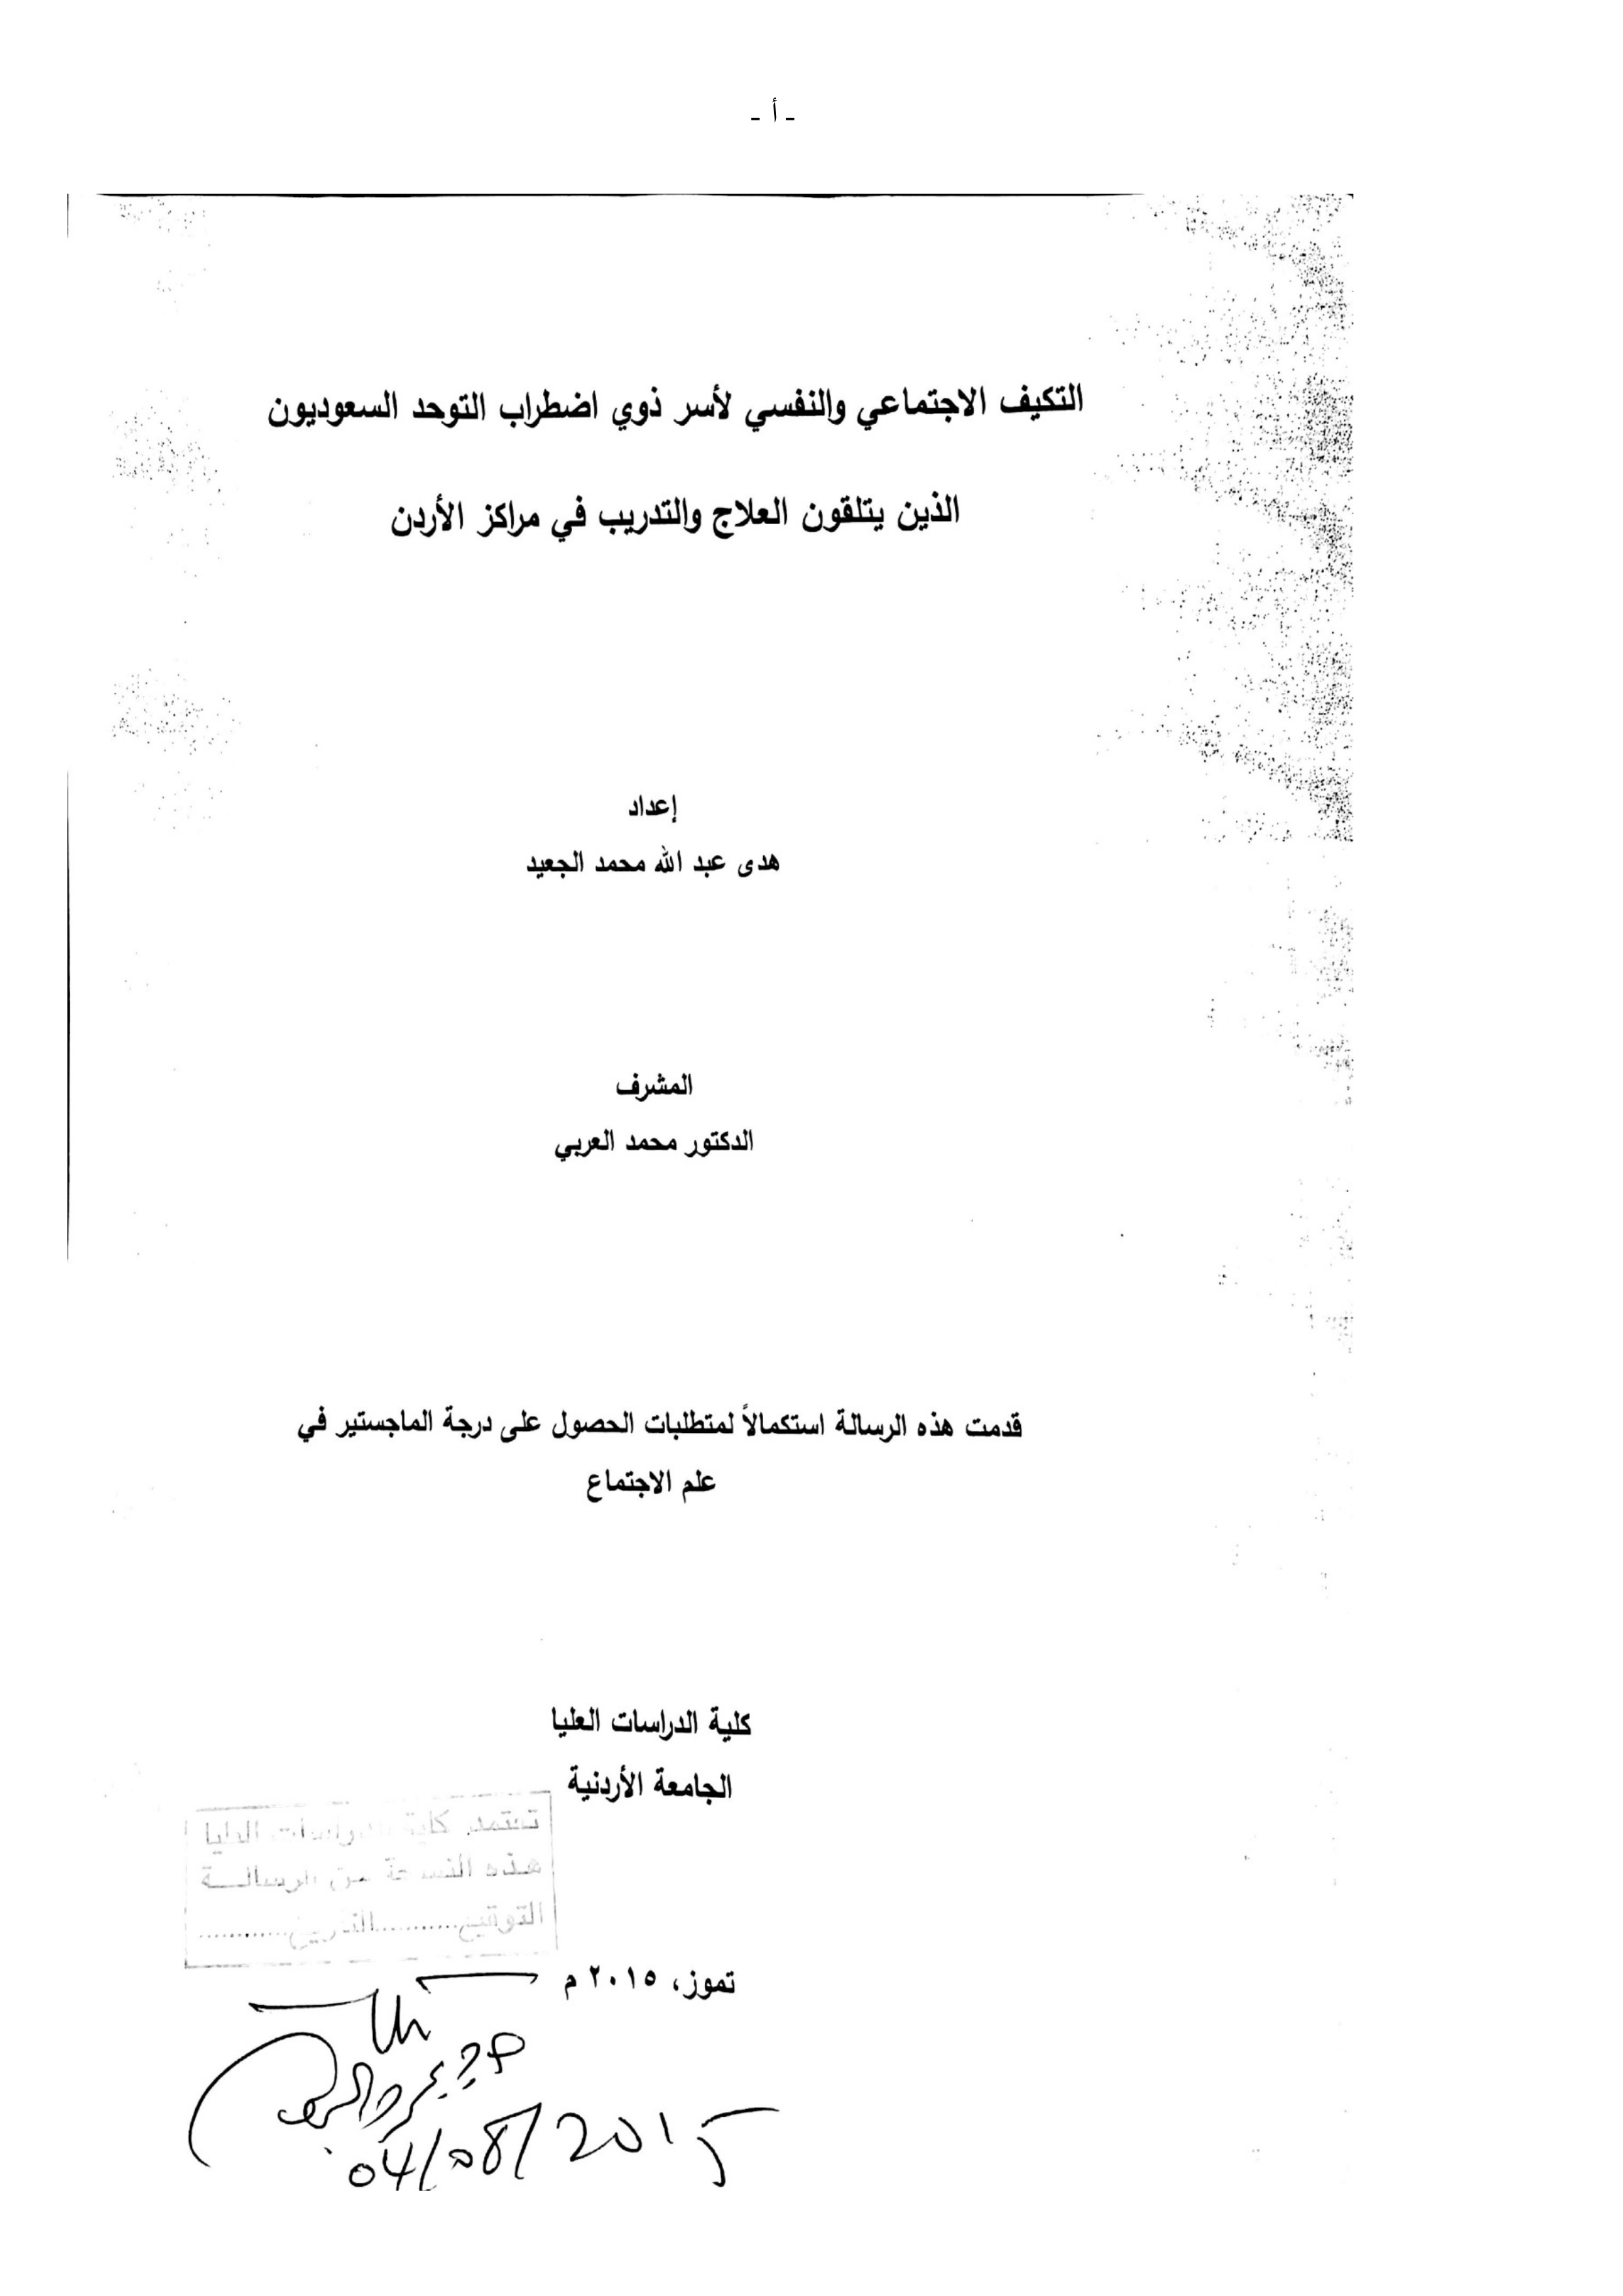 - أ -
التكيف الاجتماعي والنفسي لأسر ذوي اضطراب التوحد السعوديون
الذين يتلقون العلاج والتدريب في مراكز الأردن
إعداد
هدى عبد الله محمد الجعيد
المشرف
الدكتور محمد العربي
قدمت هذه الرسالة استكمالاً لمتطلبات الحصول على درجة الماجستير في
علم الاجتماع
كلية الدراسات العليا
الجامعة الأردنية
تعتمد كلية الدراسات العليا
هذه النسخة من الرسالــة
التوقيع...........التاريخ............
تموز، ٢٠١٥ م
04/08/2015